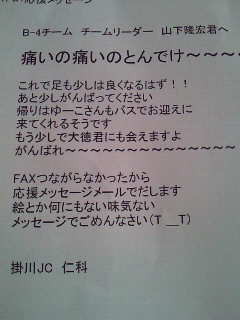 応援メッセージ
B-4チーム　チームリーダー　山下隆宏君へ
痛いの痛いのとんでけ～～～～
これで足も少しは良くなるはず！！
あと少しがんばってください
帰りはゆーこさんもバスでお迎えに
来てくれるそうです
もう少しで大徳君にも会えますよ
がんばれ～～～～～～～～～～～～～～
FAXつながらなかったから
応援メッセージメールでだします
絵とか何にもない味気ない
メッセージでごめんなさい（T＿T）
掛川JC　仁科